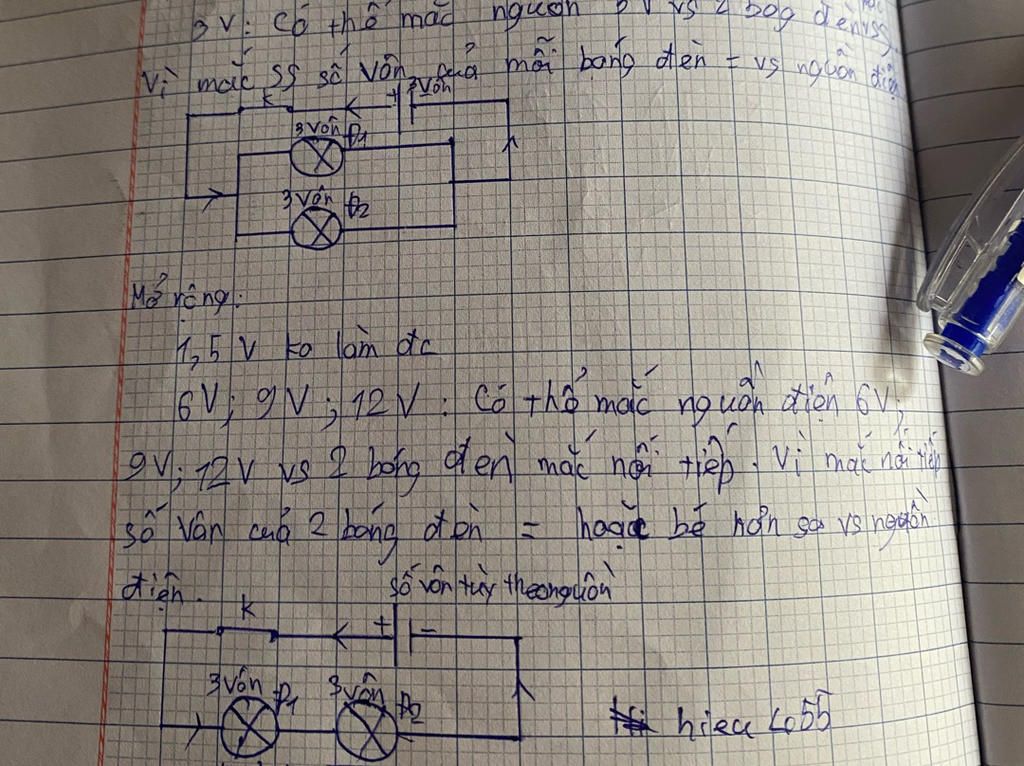 3V: Có thể mắc nguồn 3V vs 2 bóg đèn ss.
Vì mắc ss số vôn của mỗi bóng đèn = vs nguồn điện
K + 3vôn
3vôn Đ1
3vôn Đ2
Mở rộng:
1,5 V ko làm đc
6V; 9V; 12V: Có thể mắc nguồn điện 6V;
9V; 12V vs 2 bóng đèn mắc nối tiếp. Vì mắc nối tiếp
số vôn của 2 bóng đèn = hoặc bé hơn so vs nguồn
điện.
số vôn tùy theo nguồn
K + -
3vôn Đ1 3vôn Đ2